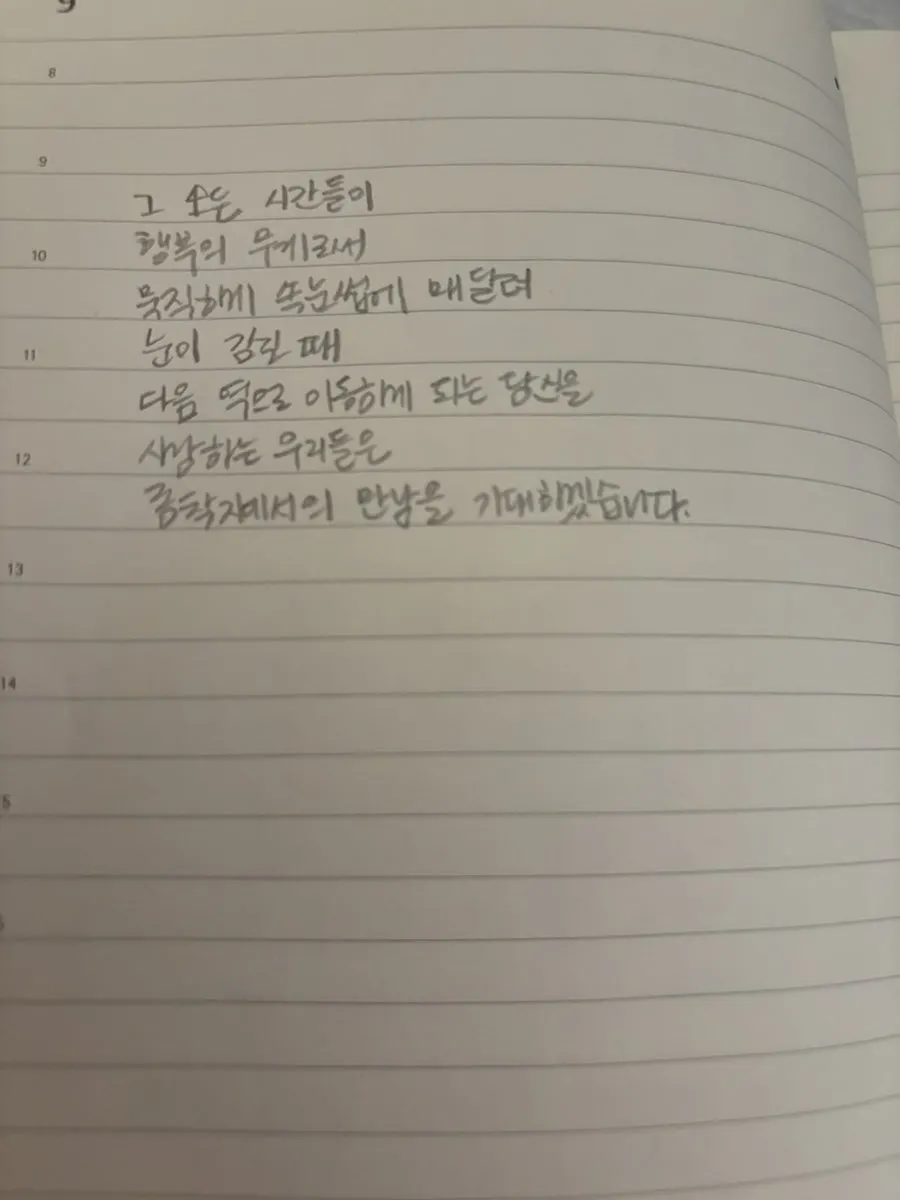 9
8
9
그 모든 시간들이
10
행복의 무게로서
묵직하게 속눈썹에 매달려
11
눈이 감길 때
다음 역으로 이동하게 되는 당신을
12
사랑하는 우리들은
종착지에서의 만남을 기대하겠습니다.
13
14
5